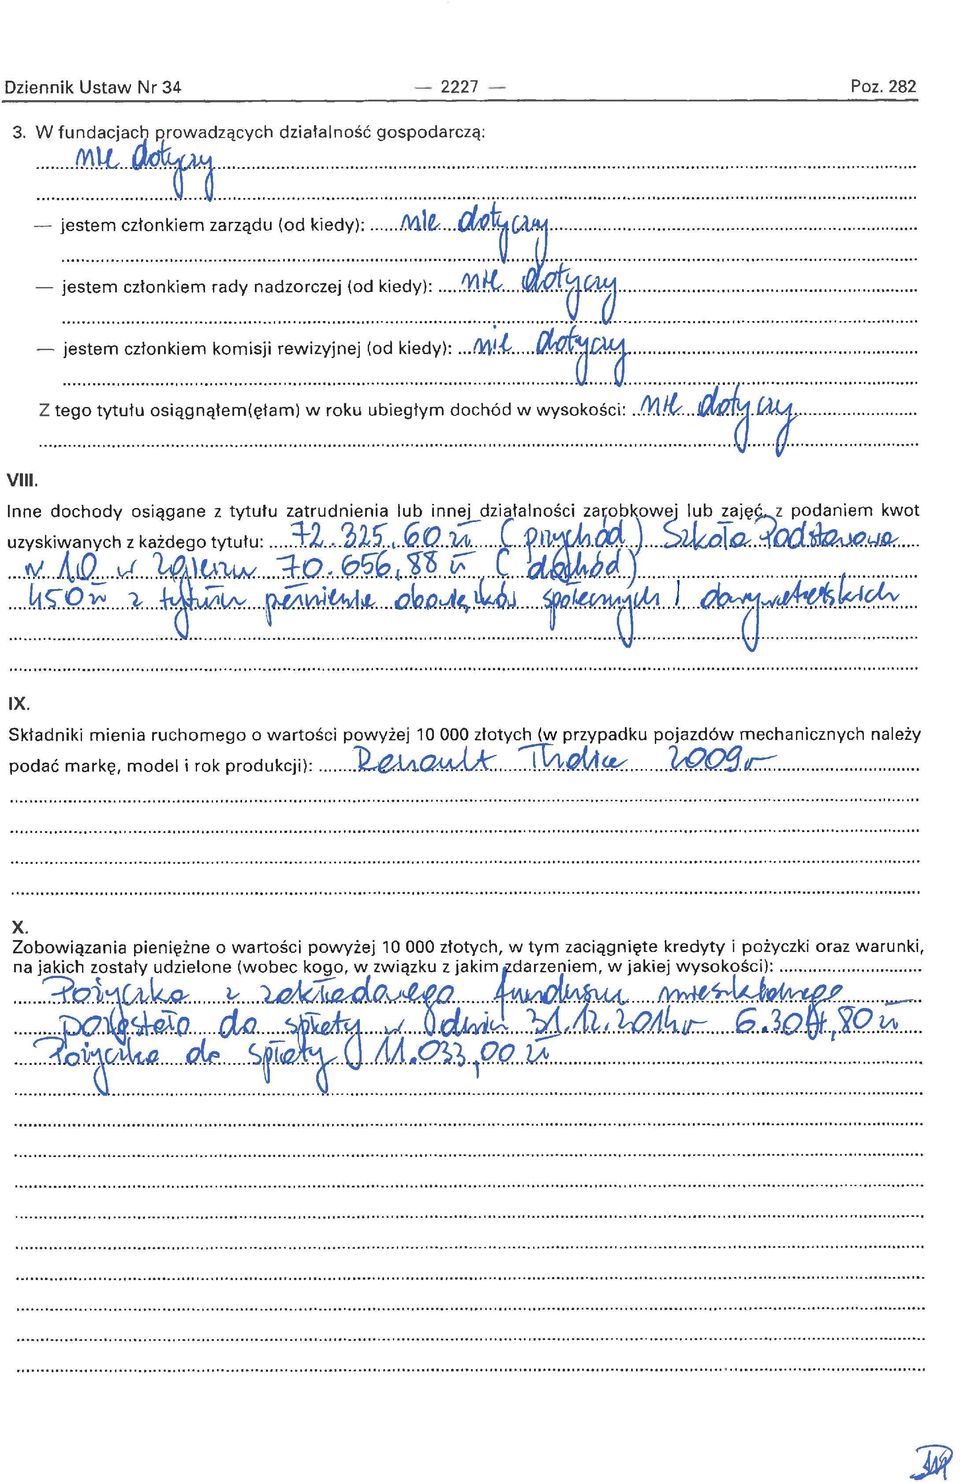 Dziennik Ustaw Nr 34 — 2227 — Poz. 282
3. W fundacjach prowadzących działalność gospodarczą:
nie dotyczy
— jestem członkiem zarządu (od kiedy): nie dotyczy
— jestem członkiem rady nadzorczej (od kiedy): nie dotyczy
— jestem członkiem komisji rewizyjnej (od kiedy): nie dotyczy
Z tego tytułu osiągnąłem(ęłam) w roku ubiegłym dochód w wysokości: nie dotyczy
VIII.
Inne dochody osiągane z tytułu zatrudnienia lub innej działalności zarobkowej lub zajęć, z podaniem kwot
uzyskiwanych z każdego tytułu: 72.325,60 zł (przychód) Szkoła Podstawowa
nr 10 w Zgierzu 70.656,88 zł (dochód)
450 zł z tytułu pełnienie obowiązków społecznych i obywatelskich
IX.
Składniki mienia ruchomego o wartości powyżej 10 000 złotych (w przypadku pojazdów mechanicznych należy
podać markę, model i rok produkcji): Renault Thalia 2009 r
X.
Zobowiązania pieniężne o wartości powyżej 10 000 złotych, w tym zaciągnięte kredyty i pożyczki oraz warunki,
na jakich zostały udzielone (wobec kogo, w związku z jakim zdarzeniem, w jakiej wysokości):
Pożyczka z zakładowego funduszu mieszkalnego
pozostało do spłaty w dniu 31.12.2014 r 6.307,80 zł
Pożyczka do spłaty 11.033,00 zł